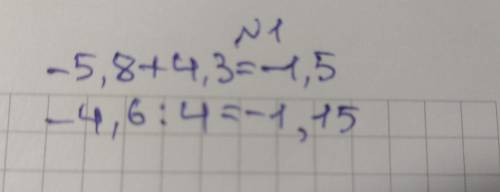 №1
-5,8+4,3=-1,5
-4,6:4=-1,15